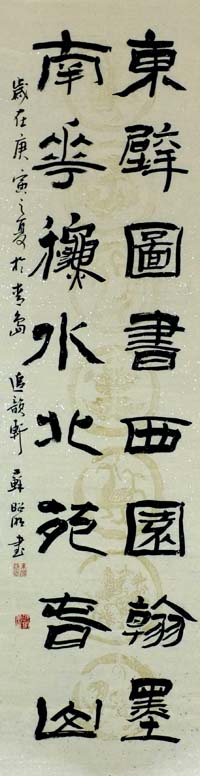 東壁圖書西園翰墨
南華穐水北苑春山
歲在庚寅之夏於青島追韻軒蘇昭書